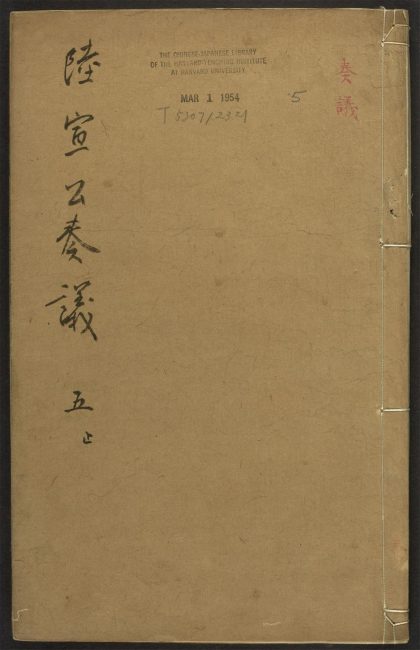 奏議
THE CHINESE-JAPANESE LIBRARY
OF THE HARVARD-YENCHING INSTITUTE
AT HARVARD UNIVERSITY
MAR 1 1954
5
T 5307/2321
陸宣公奏議 五止